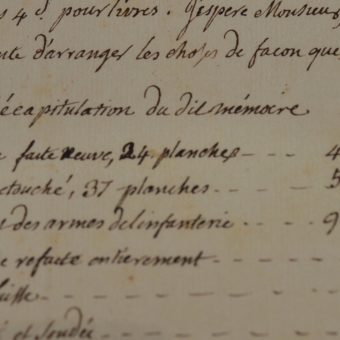 4 d. pour livres. J'espere Monsieur
d'arranger les choses de façon que
écapitulation du dit mémoire
e faite neuve, 24 planches - - - 4
etouché, 37 planches - - - - 5
des armes de l'infanterie - - - 9
e refaite entierement - - - -
et soudée - - - -